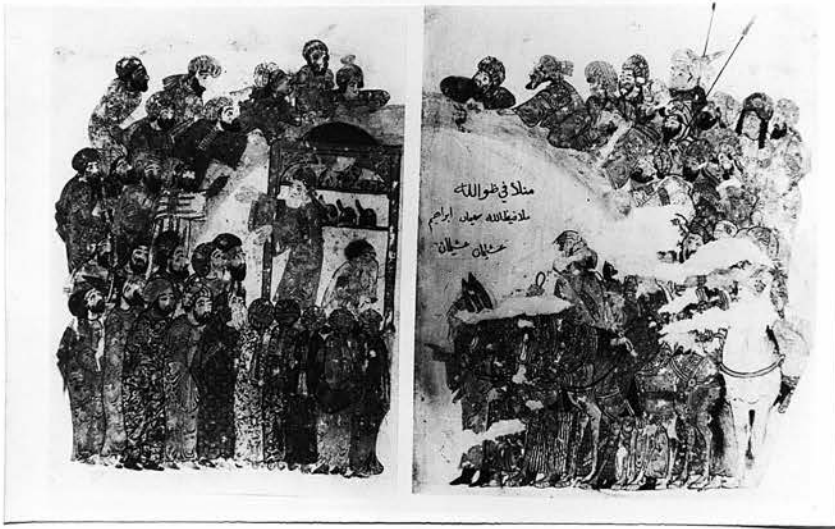 منلا في ظو الله
ملا فيظ الله سعيان ابراهيم
عثيان عثيان